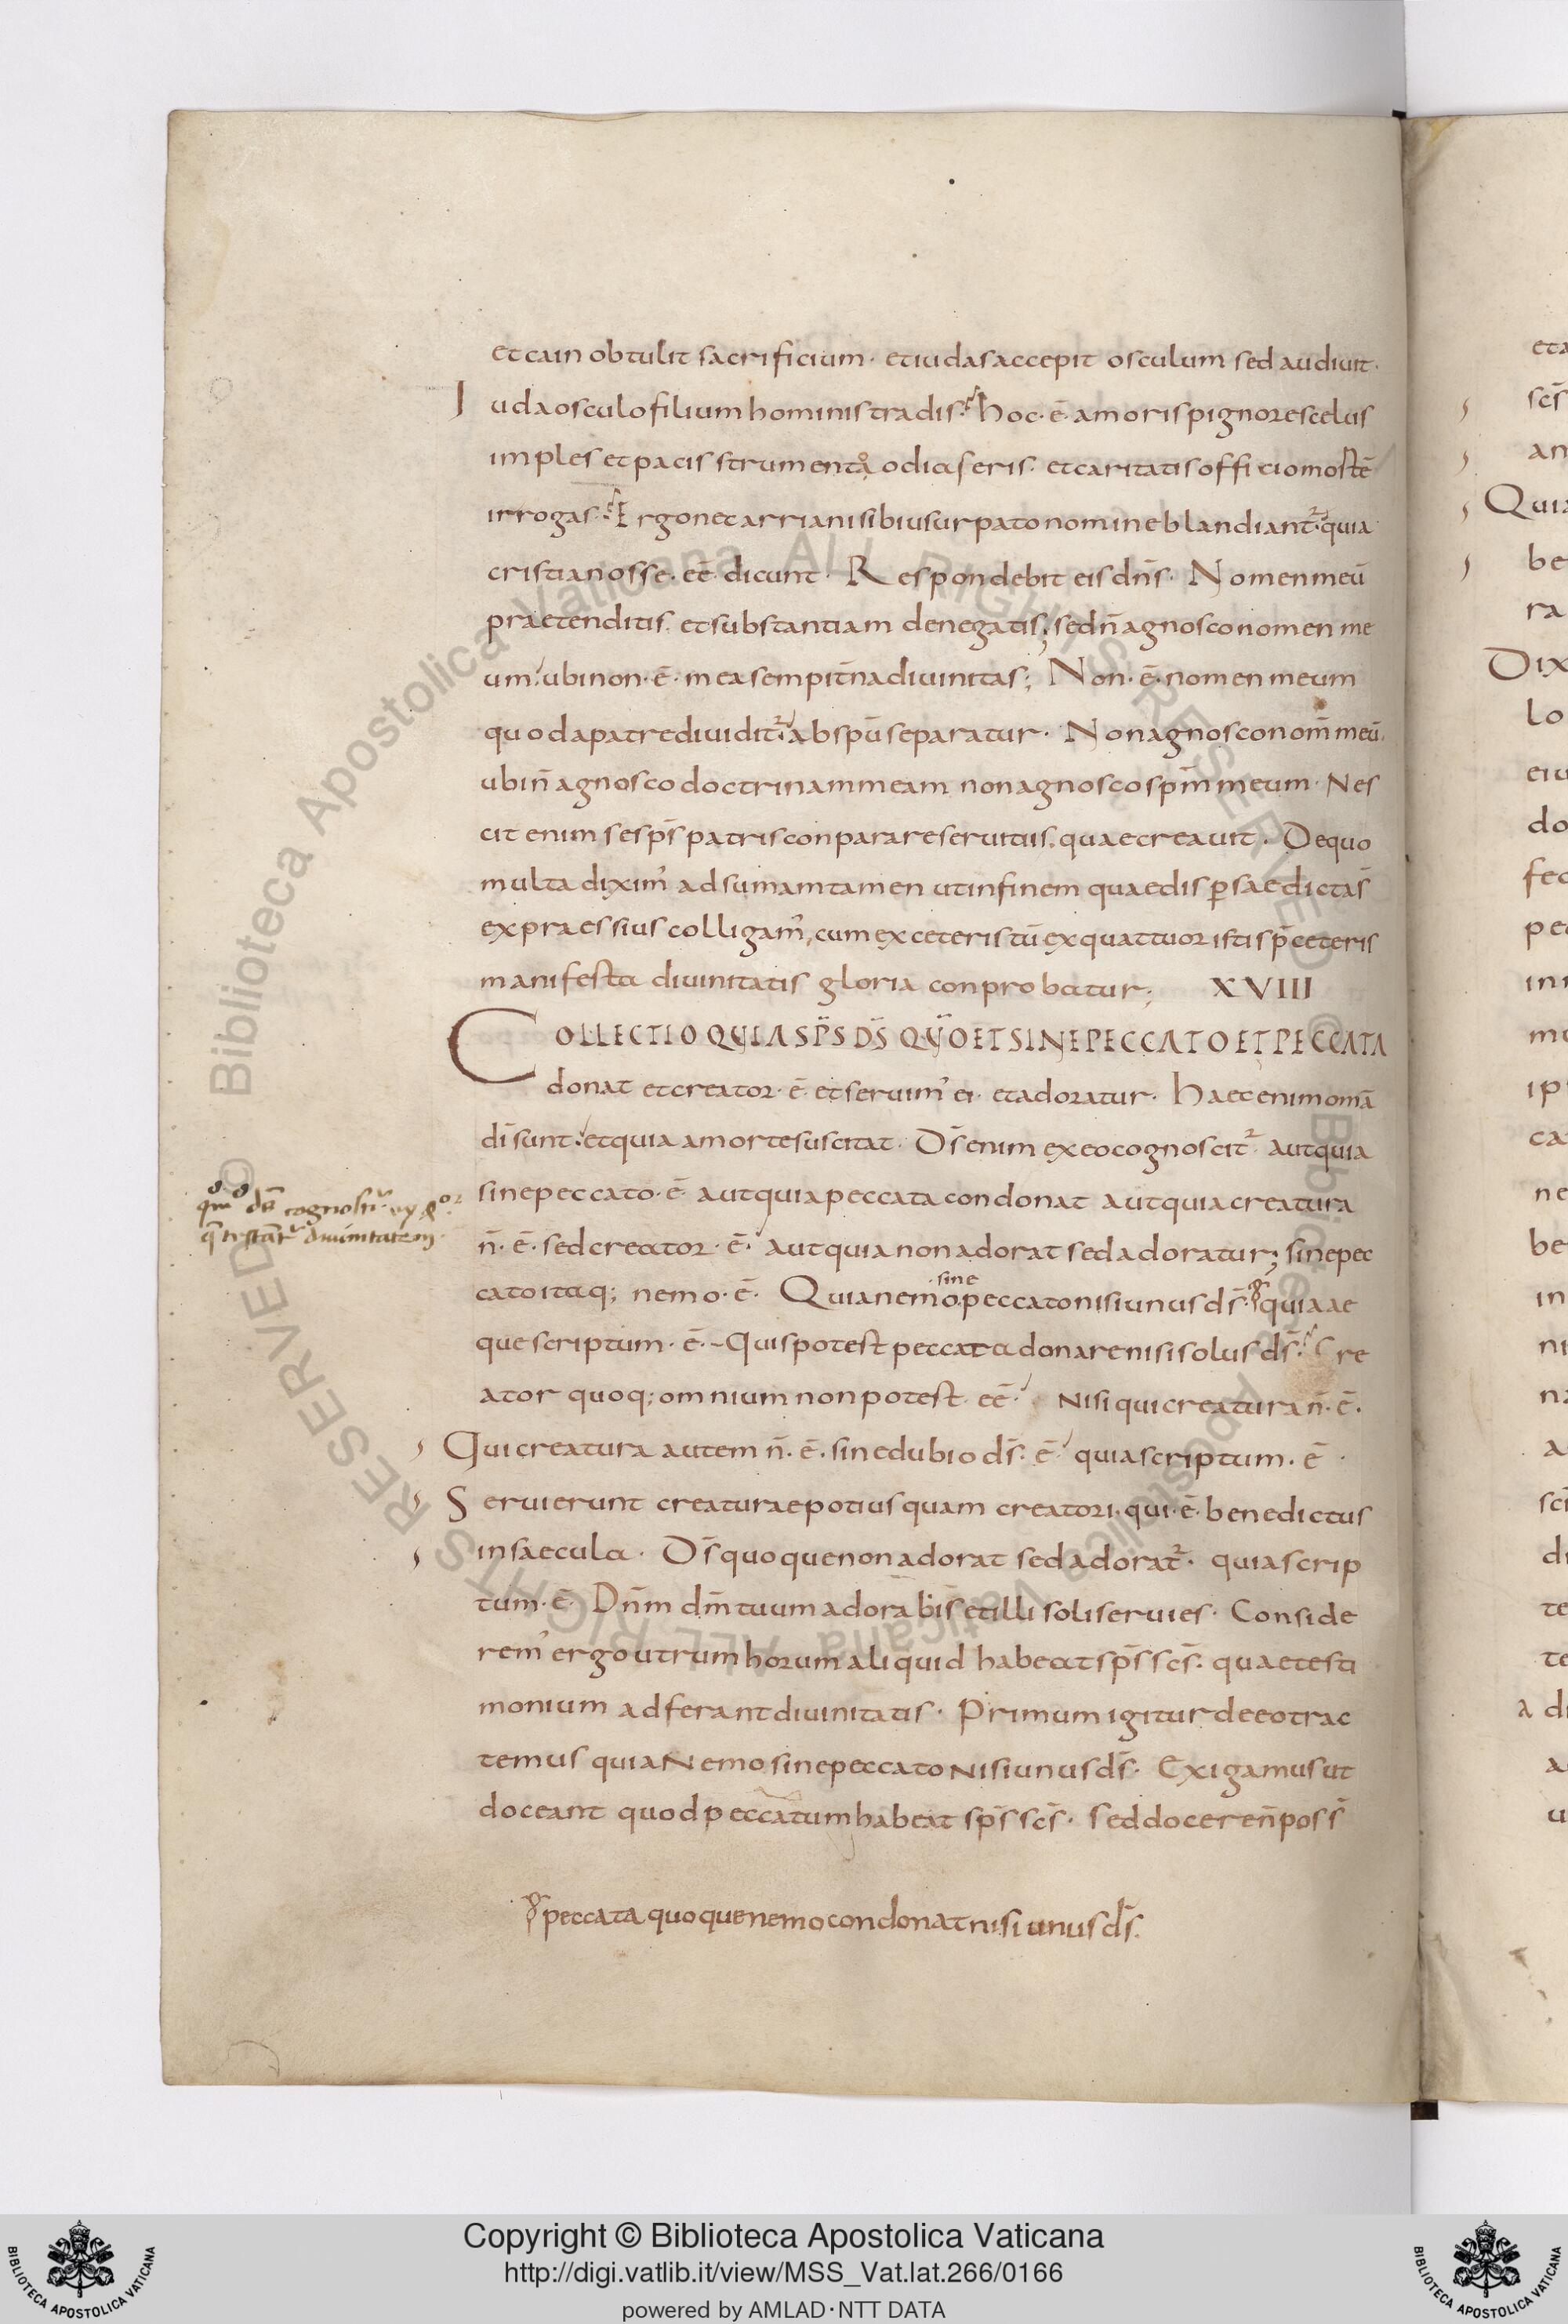 et cain obtulit sacrificium · et iudas accepit osculum sed audiuit ·
Iuda osculo filium hominis tradis · hoc · ē · amoris pignore scelus
imples et pacis strumento odia seris · et caritatis officio mostē
irrogas · Ergo net arriani sibi usurpato nomine blandiant᷑ · quia
cristianos se · eē · dicunt · Respondebit eis dn̄s · Nomen meū
praetenditis · et substantiam denegatis ; sed n̄ agnosco nomen me
um · ubi non · ē · mea sempit̄na diuinitas ; Non · ē · nomen meum
quod a patre diuidit᷑ · ab spū separatur · Non agnosco nom̄ meū ·
ubi n̄ agnosco doctrinam meam non agnosco spm̄ meum · Nes
cit enim se sps̄ patris conparare seruitiis · quae creauit · De quo
multa dixim' ad sumam tamen ut in finem quae disp̱sae dicta s̄
expraessius colligam' , cum ex ceteris tū ex quattuor istis p̄ ceteris
manifesta diuinitatis gloria conprobatur ; XVIII
COLLECTIO QUIA SP̄S D̄S QUO ET SINE PECCATO ET PECCATA
donat et creator · ē · et seruim' ei · et adoratur · Haec enim om̄a
dī sunt · et quia a morte suscitat · Ds̄ enim ex eo cognoscit᷑ aut quia
sine peccato · ē · aut quia peccata condonat aut quia creatura
n̄ · ē · sed creator · ē · aut quia non adorat sed adoratur ; sine pec
cato itaq; nemo · ē · Quia nemo sine peccato nisi unus ds̄ · quia ae
que scriptum · ē · ~ Quis potest peccata donare nisi solus ds̄ · Cre
ator quoq; omnium non potest · eē · Nisi qui creatura n̄ · ē ·
Qui creatura autem n̄ · ē · sine dubio ds̄ · ē · quia scriptum · ē ·
Seruierunt creaturae potius quam creatori · qui · ē · benedictus
in saecula · Ds̄ quoque non adorat sed adorat᷑ · quia scrip
tum · ē · Dn̄m dm̄ tuum adorabis̄ et illi soli seruies · Conside
rem' ergo utrum horum aliquid habeat sps̄ scs̄ · quae testi
monium adferant diuinitatis · Primum igitur de eo trac
temus quia Nemo sine peccato Nisi unus ds̄ · Exigamus ut
doceant quod peccatum habeat sps̄ scs̄ · sed docere n̄ poss̄
peccata quoque nemo condonat nisi unus ds̄ ·
diuinitatem ·
eta
scs̄
am
Quia
be
ra
Dix
lo
eiu
do
fec
pec
ini
mu
ipi
ca
ne
be
in
ni
na
a
sci
di
te
te
a di
a
u
© Biblioteca Apostolica Vaticana ALL RIGHTS RESERVED © Biblioteca Apostolica Vaticana ALL RIGHTS RESERVED
Copyright © Biblioteca Apostolica Vaticana
http://digi.vatlib.it/view/MSS_Vat.lat.266/0166
powered by AMLAD·NTT DATA
BIBLIOTECA APOSTOLICA VATICANA
BIBLIOTECA APOSTOLICA VATICANA